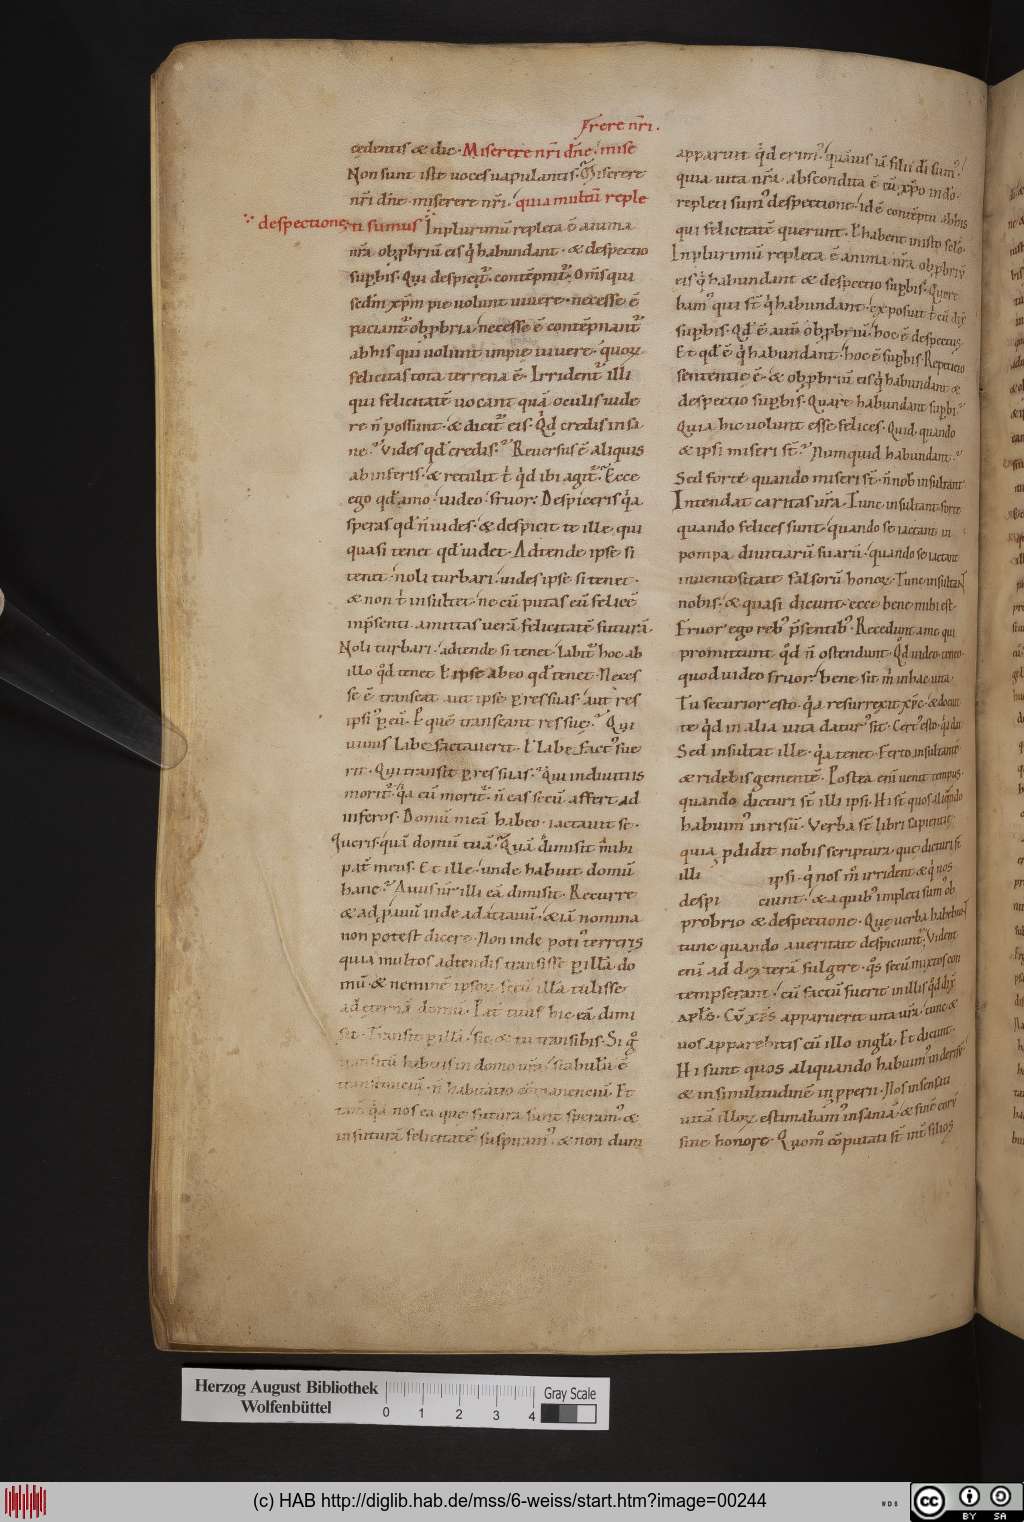 rere nr̄i.
cędentis & dic· Miserere nr̄i dn̄e· mise
Non sunt istę uoces uapulantis· Miserere
nr̄i dn̄e miserere nr̄i· quia multū reple
despectione· ti sumus In plurimū repleta ē anima
nr̄a obp̱briū eis q̍ habundant· & despectio
suꝑbis· Qui despiciunt᷒ contēpnunt᷒· Om̄s qui
sedm̄ xp̄m pie uolunt uiuere· necesse ē
paciant᷒ obp̱bria· necesse ē contēpnant᷒
ab his qui uolunt impie uiuere· quoꝝ
felicitas tota terrena ē· Irrident᷒ illi
qui felicitatē uocant quā oculis uide
re n̄ possunt· & dicit᷒ eis· Qd̍ credis insa
ne? Vides qd̍ credis? Reuersus ē aliquis
ab inferis· & retulit t̍ q̍d ibi agit᷒? Ecce
ego qd̍ amo· uideo· fruor: Despiceris q̍a
speras qd̍ n̄ uides· & despicit te ille qui
quasi tenet qd̍ uidet· Adtende ipse si
tenet· noli turbari· uides ipse si tenet·
& non t̍ insultet· ne cū putas eū felicē
in p̄senti amittas uerā felicitatē futurā·
Noli turbari· adtende si tenet· labit᷒ hoc ab
illo qd̍ tenet ł ipse ab eo qd̍ tenet· Neces
se ē transeat aut ipse ꝑ res suas· aut res
ipsi᷒ ꝑ eū· Ꝑ quē transeant res suę? Qui
uiuus labefactauerit· ł labefact᷒ fue
rit· Qui transit ꝑ res suas? Qui in diuitiis
morit᷒· q̍a cū morit᷒· n̄ eas secū affert ad
inferos· Domū meā habeo· iactauit se·
Queris· quā domū tuā? Quā dimisit mihi
pat̄ meus· Et ille· unde habuit domū
hanc? Auus nr̄ illi eā dimisit· Recurre
& ad p̱auū inde ad atauū· & iā nomina
non potest dicere· Non inde poti᷒ terreris
quia multos adtendis transisse ꝑ illā do
mū· & neminē ipsoꝝ secū illā tulisse
ad ęternā domū· Pat̄ tuus hic eā dimi
sit· Transit ꝑ illā· sic & tu transibis· Si g̊
transitū habetis in domo ur̄a· stabulū ē
transeunciū· n̄ habitatio ꝑmanenciū· Et
tam̄ q̍a nos ea quę futura sunt speram᷒· &
in futurā felicitatē suspiram᷒· & non dum
apparuit q̍d erim᷒· quāuis iā filii di̍ sum᷒·
quia uita nr̄a abscondita ē cū xp̄o in do̍·
repleti sum᷒ despectione· id ē contēptu ab his
qui felicitatē querunt· ł habent in isto sclo̍·
In plurimū repleta ē anima nr̄a obp̱briū
eis q̍ habundant & despectio suꝑbis· Quere
bam᷒ qui st̄ q̍ habundant· exposuit t̍ cū dix̄
suꝑbis· Qd̍ ē aut̄ obp̱briū· hoc ē despectus·
Et qd̍ ē q̍ habundant· hoc ē suꝑbis· Repeticio
sententię ē· & obp̱briū eis q̍ habundant &
despectio suꝑbis· Quare habundant suꝑbi?
Quia hic uolunt esse felices· Quid· quando
& ipsi miseri st̄? Numquid habundant?
Sed forte quando miseri st̄· n̄ nob̄ insultant
Intendat caritas ur̄a· Tunc insultant forte
quando felices sunt· quando se iactant in
pompa diuitiarū suarū· quando se iactant
in uentositate falsorū honoꝝ· Tunc insultant
nobis· & quasi dicunt· ecce bene mihi est·
Fruor ego reb᷒ p̄sentib᷒· Recedunt a me qui
promittunt qd̍ n̄ ostendunt· Qd̍ uideo teneo·
quod uideo fruor· bene sit m̍ in hac uita·
Tu securior esto· q̍a resurrexit xp̄c· & docuit
te q̍d in alia uita datur᷒ sit· Cert᷒ esto· q̍a dat
Sed insultat ille· q̍a tenet· Ferto insultantē
& ridebis gementē· Postea eni̍ uenit tempus·
quando dicturi st̄ illi ipsi· Hi st̄ quos aliq̄ndo
habuim᷒ in risū· Verba st̄ libri sapientię·
quia ꝓdidit nobis scriptura quę dicturi st̄
illi ipsi· q̍ nos m̊ irrident & q̍ nos
despi ciunt· & a quib᷒ impleti sum᷒ ob
probrio & despectione· Quę uerba habebunt
tunc quando a ueritate despiciunt᷒· Vident
eni̍ ad dexterā fulgere· q̍s secū mixtos con
tempserant· cū factū fuerit in illis q̍d dix̄
apl̄s· Cū xp̄s apparuerit uita ur̄a· tunc &
uos apparebitis cū illo in gl̄a· Et dicunt·
Hi sunt quos aliquando habuim᷒ in derisū
& in similitudinē inp̱perii· Nos insensati
uitā illoꝝ estimabam᷒ insaniā· & finē eorū
sine honore· Quom̊ cōputati st̄ int̄ filios
Herzog August Bibliothek
Wolfenbüttel
0 1 2 3 4
Gray Scale
(c) HAB http://diglib.hab.de/mss/6-weiss/start.htm?image=00244
cc BY SA